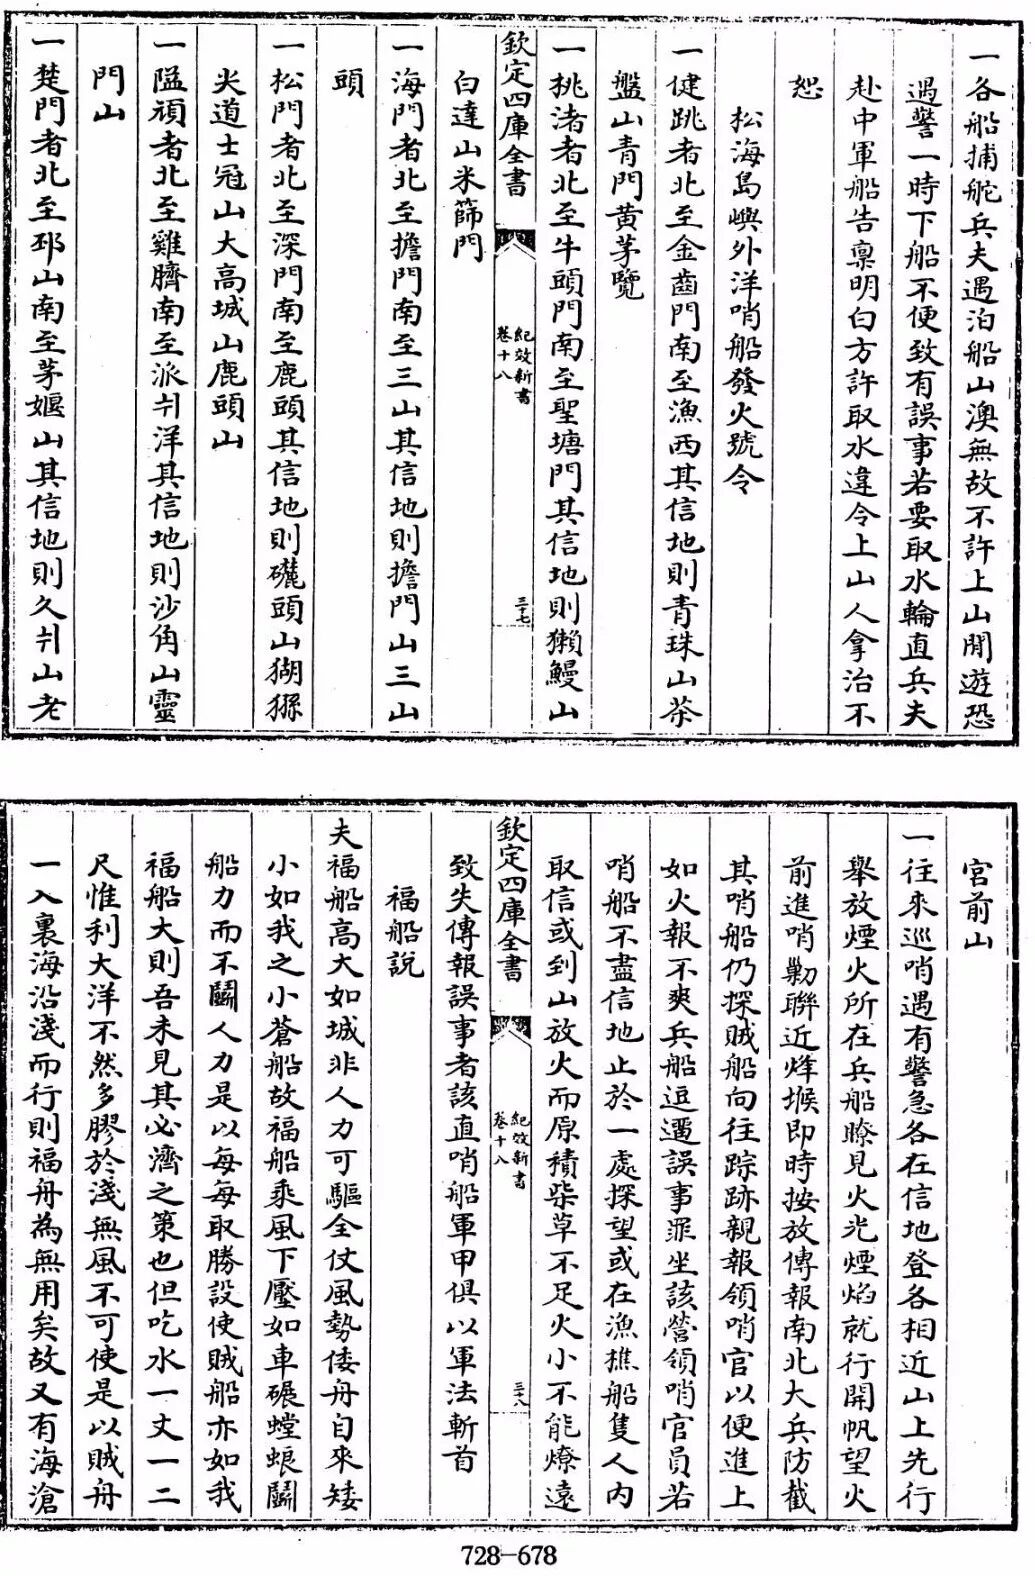 一各船捕舵兵夫遇泊船山澳無故不許上山閒遊恐
遇警一時下船不便致有誤事若要取水輪直兵夫
赴中軍船告稟明白方許取水違令上山人拿治不
恕
松海島嶼外洋哨船發火號令
一健跳者北至金齒門南至漁西其信地則青珠山茶
盤山青門黄茅覽
一挑渚者北至牛頭門南至聖塘門其信地則獺鰻山
欽定四庫全書
紀效新書
卷十八
三十七
白達山米篩門
一海門者北至擔門南至三山其信地則擔門山三山
頭
一松門者北至深門南至鹿頭其信地則礲頭山猢猻
尖道士冠山大高城山鹿頭山
一隘頑者北至雞臍南至派刋洋其信地則沙角山靈
門山
一楚門者北至邳山南至茅堰山其信地則久刋山老
宫前山
一往來巡哨遇有警急各在信地登各相近山上先行
舉放煙火所在兵船瞭見火光煙焰就行開帆望火
前進哨勦聯近烽堠即時按放傳報南北大兵防截
其哨船仍探賊船向往踪跡親報領哨官以便進上
如火報不爽兵船逗遛誤事罪坐該營領哨官員若
哨船不盡信地止於一處探望或在漁樵船隻人内
取信或到山放火而原積柴草不足火小不能燎遠
欽定四庫全書
紀效新書
卷十八
三十八
致失傳報誤事者該直哨船軍甲俱以軍法斬首
福船説
夫福船高大如城非人力可驅全仗風勢倭舟自來矮
小如我之小蒼船故福船乘風下壓如車碾螳蜋鬬
船力而不鬬人力是以每每取勝設使賊船亦如我
福船大則吾未見其必濟之策也但吃水一丈一二
尺惟利大洋不然多膠於淺無風不可使是以賊舟
一入裏海沿淺而行則福舟為無用矣故又有海滄
728-678